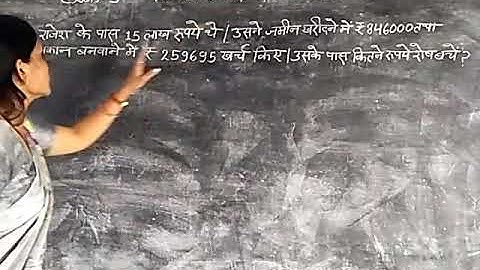 राजेश के पास 15 लाख रुपये थे / उसने जमीन खरीदने में ₹ 846000 तथा
मकान बनवाने में ₹ 259695 खर्च किए / उसके पास कितने रुपये शेष बचे ?